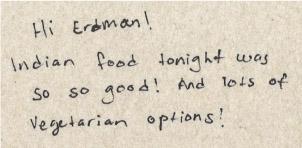 Hi Erdman!
Indian food tonight was
so so good! And lots of
vegetarian options!